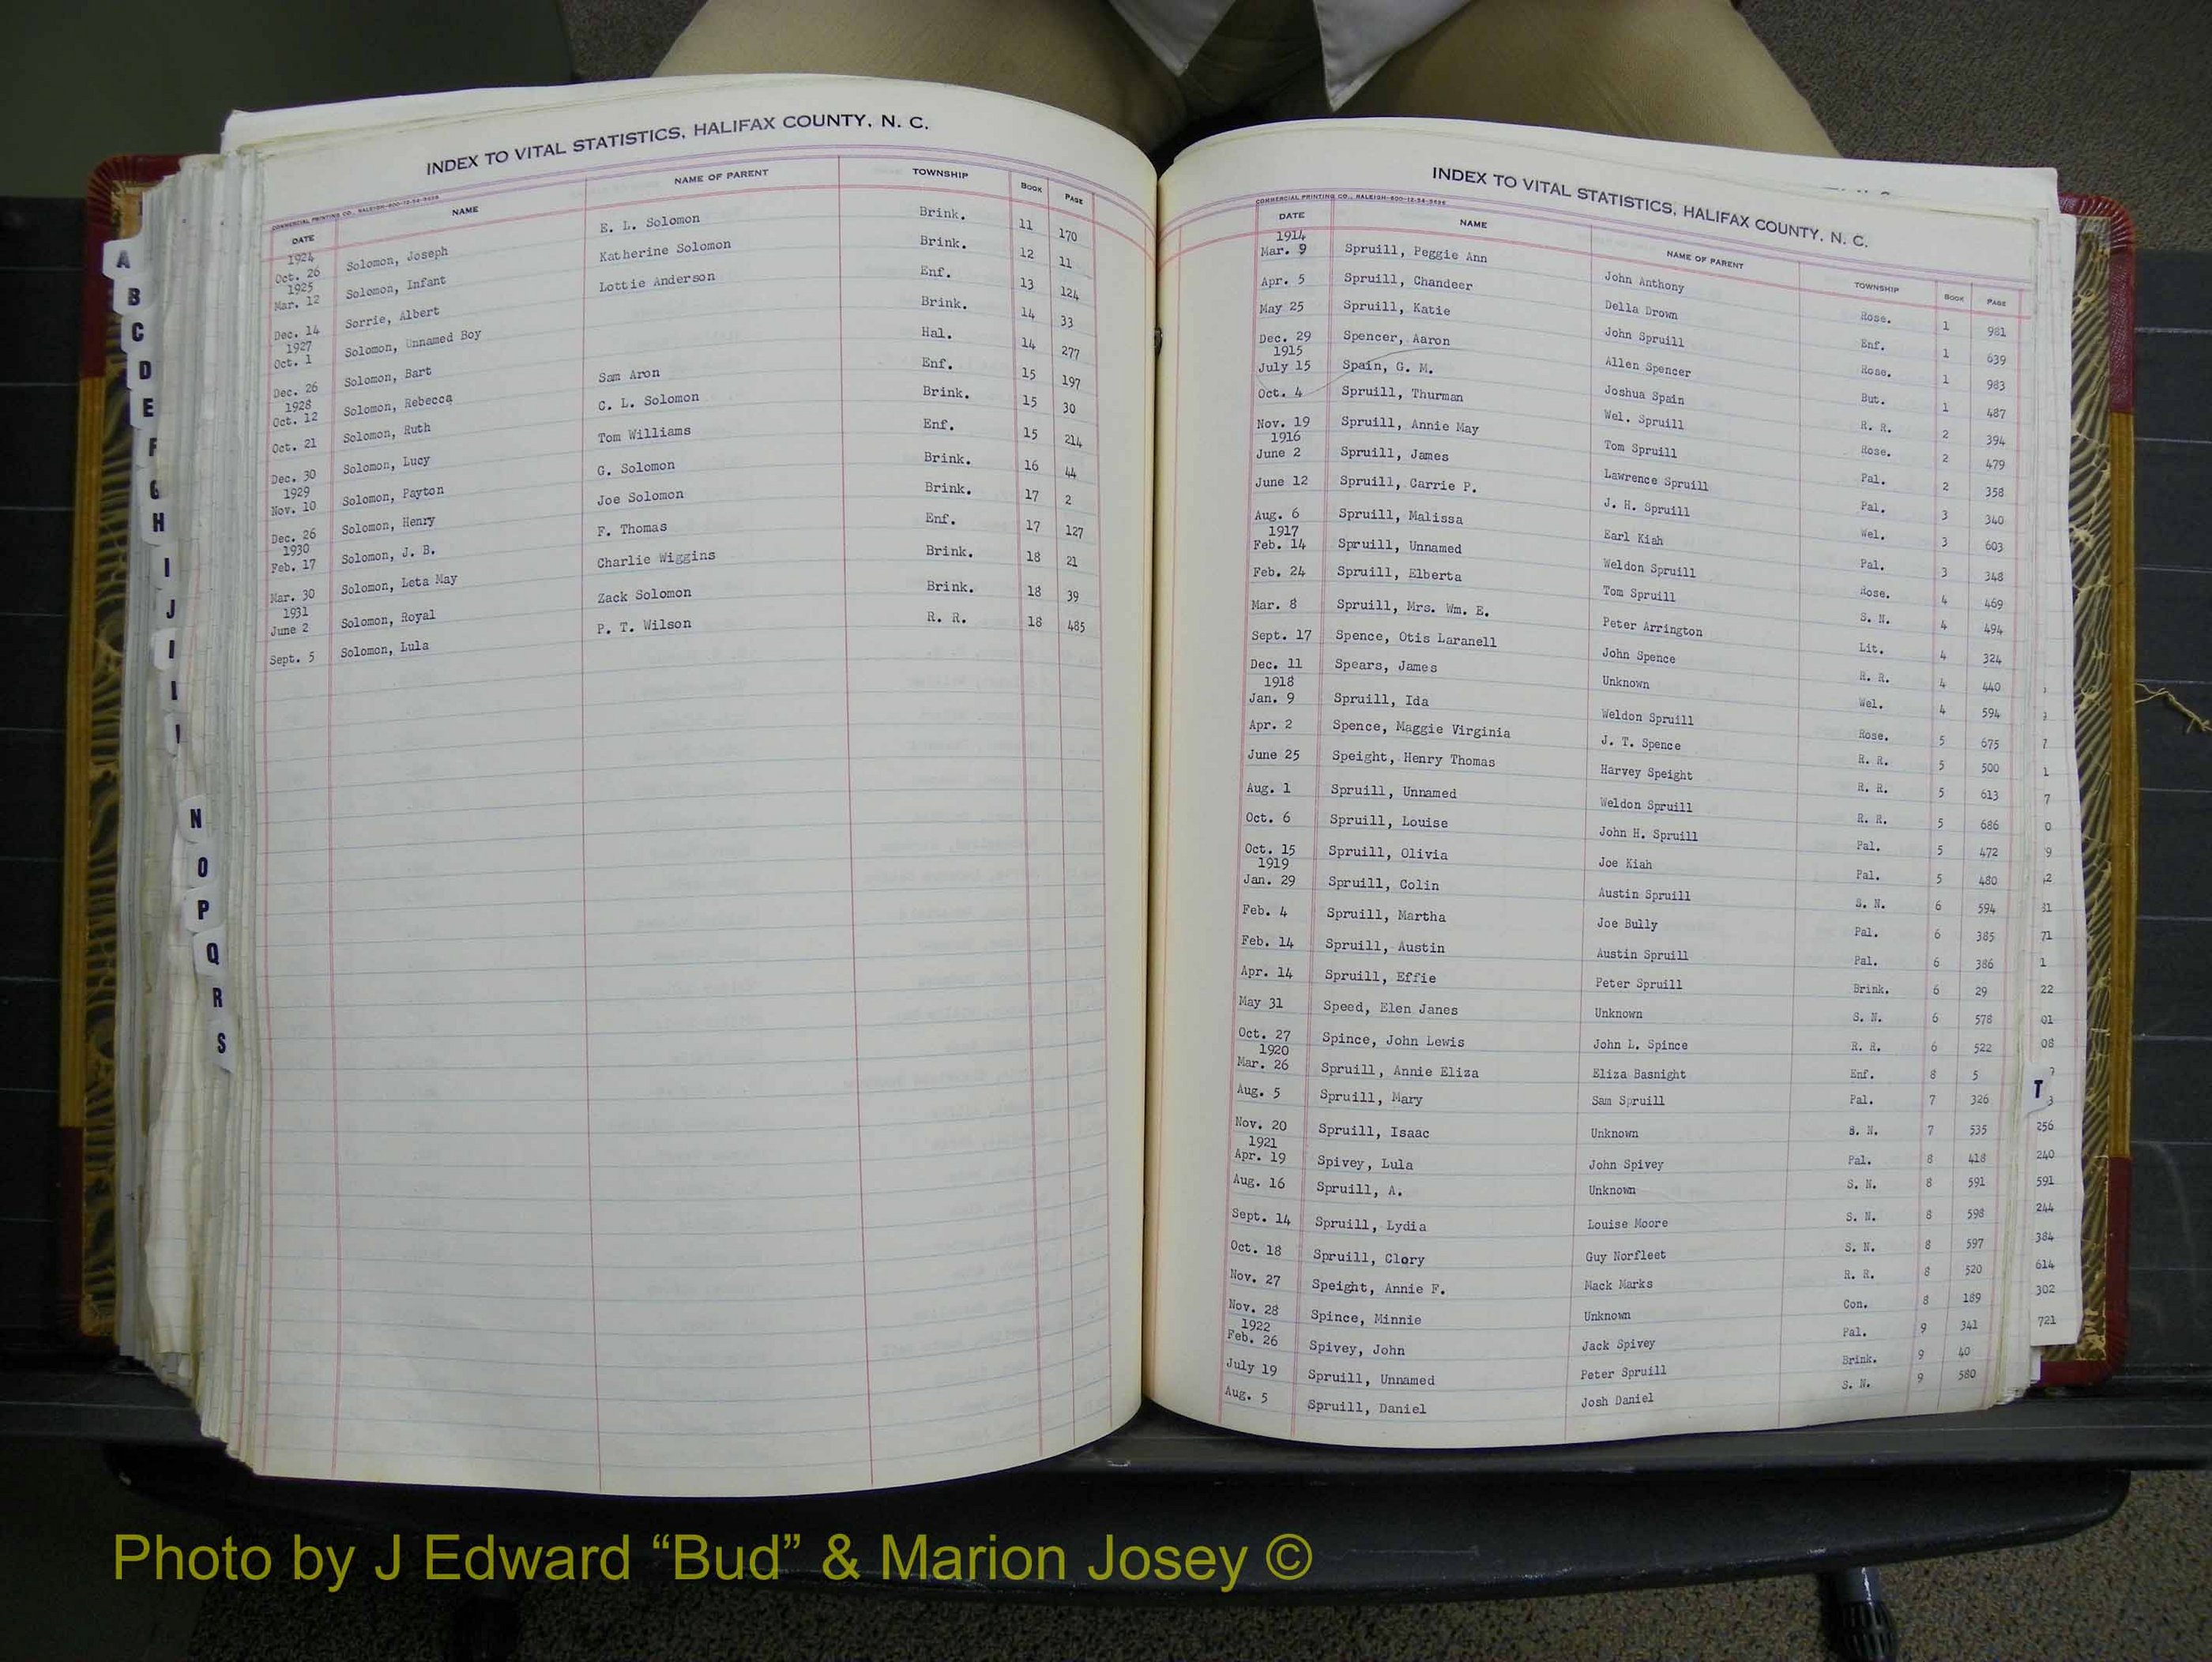 INDEX TO VITAL STATISTICS, HALIFAX COUNTY, N. C.
COMMERCIAL PRINTING CO., RALEIGH-800-12-54-9636
DATE NAME NAME OF PARENT TOWNSHIP BOOK PAGE
1924
Oct. 26 Solomon, Joseph E. L. Solomon Brink. 11 170
1925
Mar. 12 Solomon, Infant Katherine Solomon Brink. 12 11
Dec. 14 Sorrie, Albert Lottie Anderson Enf. 13 124
1927
Oct. 1 Solomon, Unnamed Boy Brink. 14 33
Dec. 26 Solomon, Bart Hal. 14 277
1928
Oct. 12 Solomon, Rebecca Sam Aron Enf. 15 197
Oct. 21 Solomon, Ruth C. L. Solomon Brink. 15 30
Dec. 30 Solomon, Lucy Tom Williams Enf. 15 214
1929
Nov. 10 Solomon, Payton G. Solomon Brink. 16 44
Dec. 26 Solomon, Henry Joe Solomon Brink. 17 2
1930
Feb. 17 Solomon, J. B. F. Thomas Enf. 17 127
Mar. 30 Solomon, Leta May Charlie Wiggins Brink. 18 21
1931
June 2 Solomon, Royal Zack Solomon Brink. 18 39
Sept. 5 Solomon, Lula P. T. Wilson R. R. 18 485
A
B
C
D
E
F
G
H
I
J
N
O
P
Q
R
S
INDEX TO VITAL STATISTICS, HALIFAX COUNTY, N. C.
COMMERCIAL PRINTING CO., RALEIGH-800-12-54-9636
DATE NAME NAME OF PARENT TOWNSHIP BOOK PAGE
1914
Mar. 9 Spruill, Peggie Ann John Anthony Rose. 1 981
Apr. 5 Spruill, Chandeer Della Drown Enf. 1 639
May 25 Spruill, Katie John Spruill Rose. 1 983
Dec. 29 Spencer, Aaron Allen Spencer But. 1 487
1915
July 15 Spain, G. M. Joshua Spain R. R. 2 394
Oct. 4 Spruill, Thurman Wel. Spruill Rose. 2 479
Nov. 19 Spruill, Annie May Tom Spruill Pal. 2 358
1916
June 2 Spruill, James Lawrence Spruill Pal. 3 340
June 12 Spruill, Carrie P. J. H. Spruill Wel. 3 603
Aug. 6 Spruill, Malissa Earl Kiah Pal. 3 348
1917
Feb. 14 Spruill, Unnamed Weldon Spruill Rose. 4 469
Feb. 24 Spruill, Elberta Tom Spruill S. N. 4 494
Mar. 8 Spruill, Mrs. Wm. E. Peter Arrington Lit. 4 324
Sept. 17 Spence, Otis Laranell John Spence R. R. 4 440
Dec. 11 Spears, James Unknown Wel. 4 594
1918
Jan. 9 Spruill, Ida Weldon Spruill Rose. 5 675
Apr. 2 Spence, Maggie Virginia J. T. Spence R. R. 5 500
June 25 Speight, Henry Thomas Harvey Speight R. R. 5 613
Aug. 1 Spruill, Unnamed Weldon Spruill R. R. 5 686
Oct. 6 Spruill, Louise John H. Spruill Pal. 5 472
Oct. 15 Spruill, Olivia Joe Kiah Pal. 5 480
1919
Jan. 29 Spruill, Colin Austin Spruill S. N. 6 594
Feb. 4 Spruill, Martha Joe Bully Pal. 6 385
Feb. 14 Spruill, Austin Austin Spruill Pal. 6 386
Apr. 14 Spruill, Effie Peter Spruill Brink. 6 29
May 31 Speed, Elen Janes Unknown S. N. 6 578
Oct. 27 Spince, John Lewis John L. Spince R. R. 6 522
1920
Mar. 26 Spruill, Annie Eliza Eliza Basnight Enf. 8 5
Aug. 5 Spruill, Mary Sam Spruill Pal. 7 326
Nov. 20 Spruill, Isaac Unknown S. N. 7 535
1921
Apr. 19 Spivey, Lula John Spivey Pal. 8 418
Aug. 16 Spruill, A. Unknown S. N. 8 591
Sept. 14 Spruill, Lydia Louise Moore S. N. 8 598
Oct. 18 Spruill, Clory Guy Norfleet S. N. 8 597
Nov. 27 Speight, Annie F. Mack Marks R. R. 8 520
Nov. 28 Spince, Minnie Unknown Con. 8 189
1922
Feb. 26 Spivey, John Jack Spivey Pal. 9 341
July 19 Spruill, Unnamed Peter Spruill Brink. 9 40
Aug. 5 Spruill, Daniel Josh Daniel S. N. 9 580
T
256
240
591
244
384
614
302
721
Photo by J Edward “Bud” & Marion Josey ©